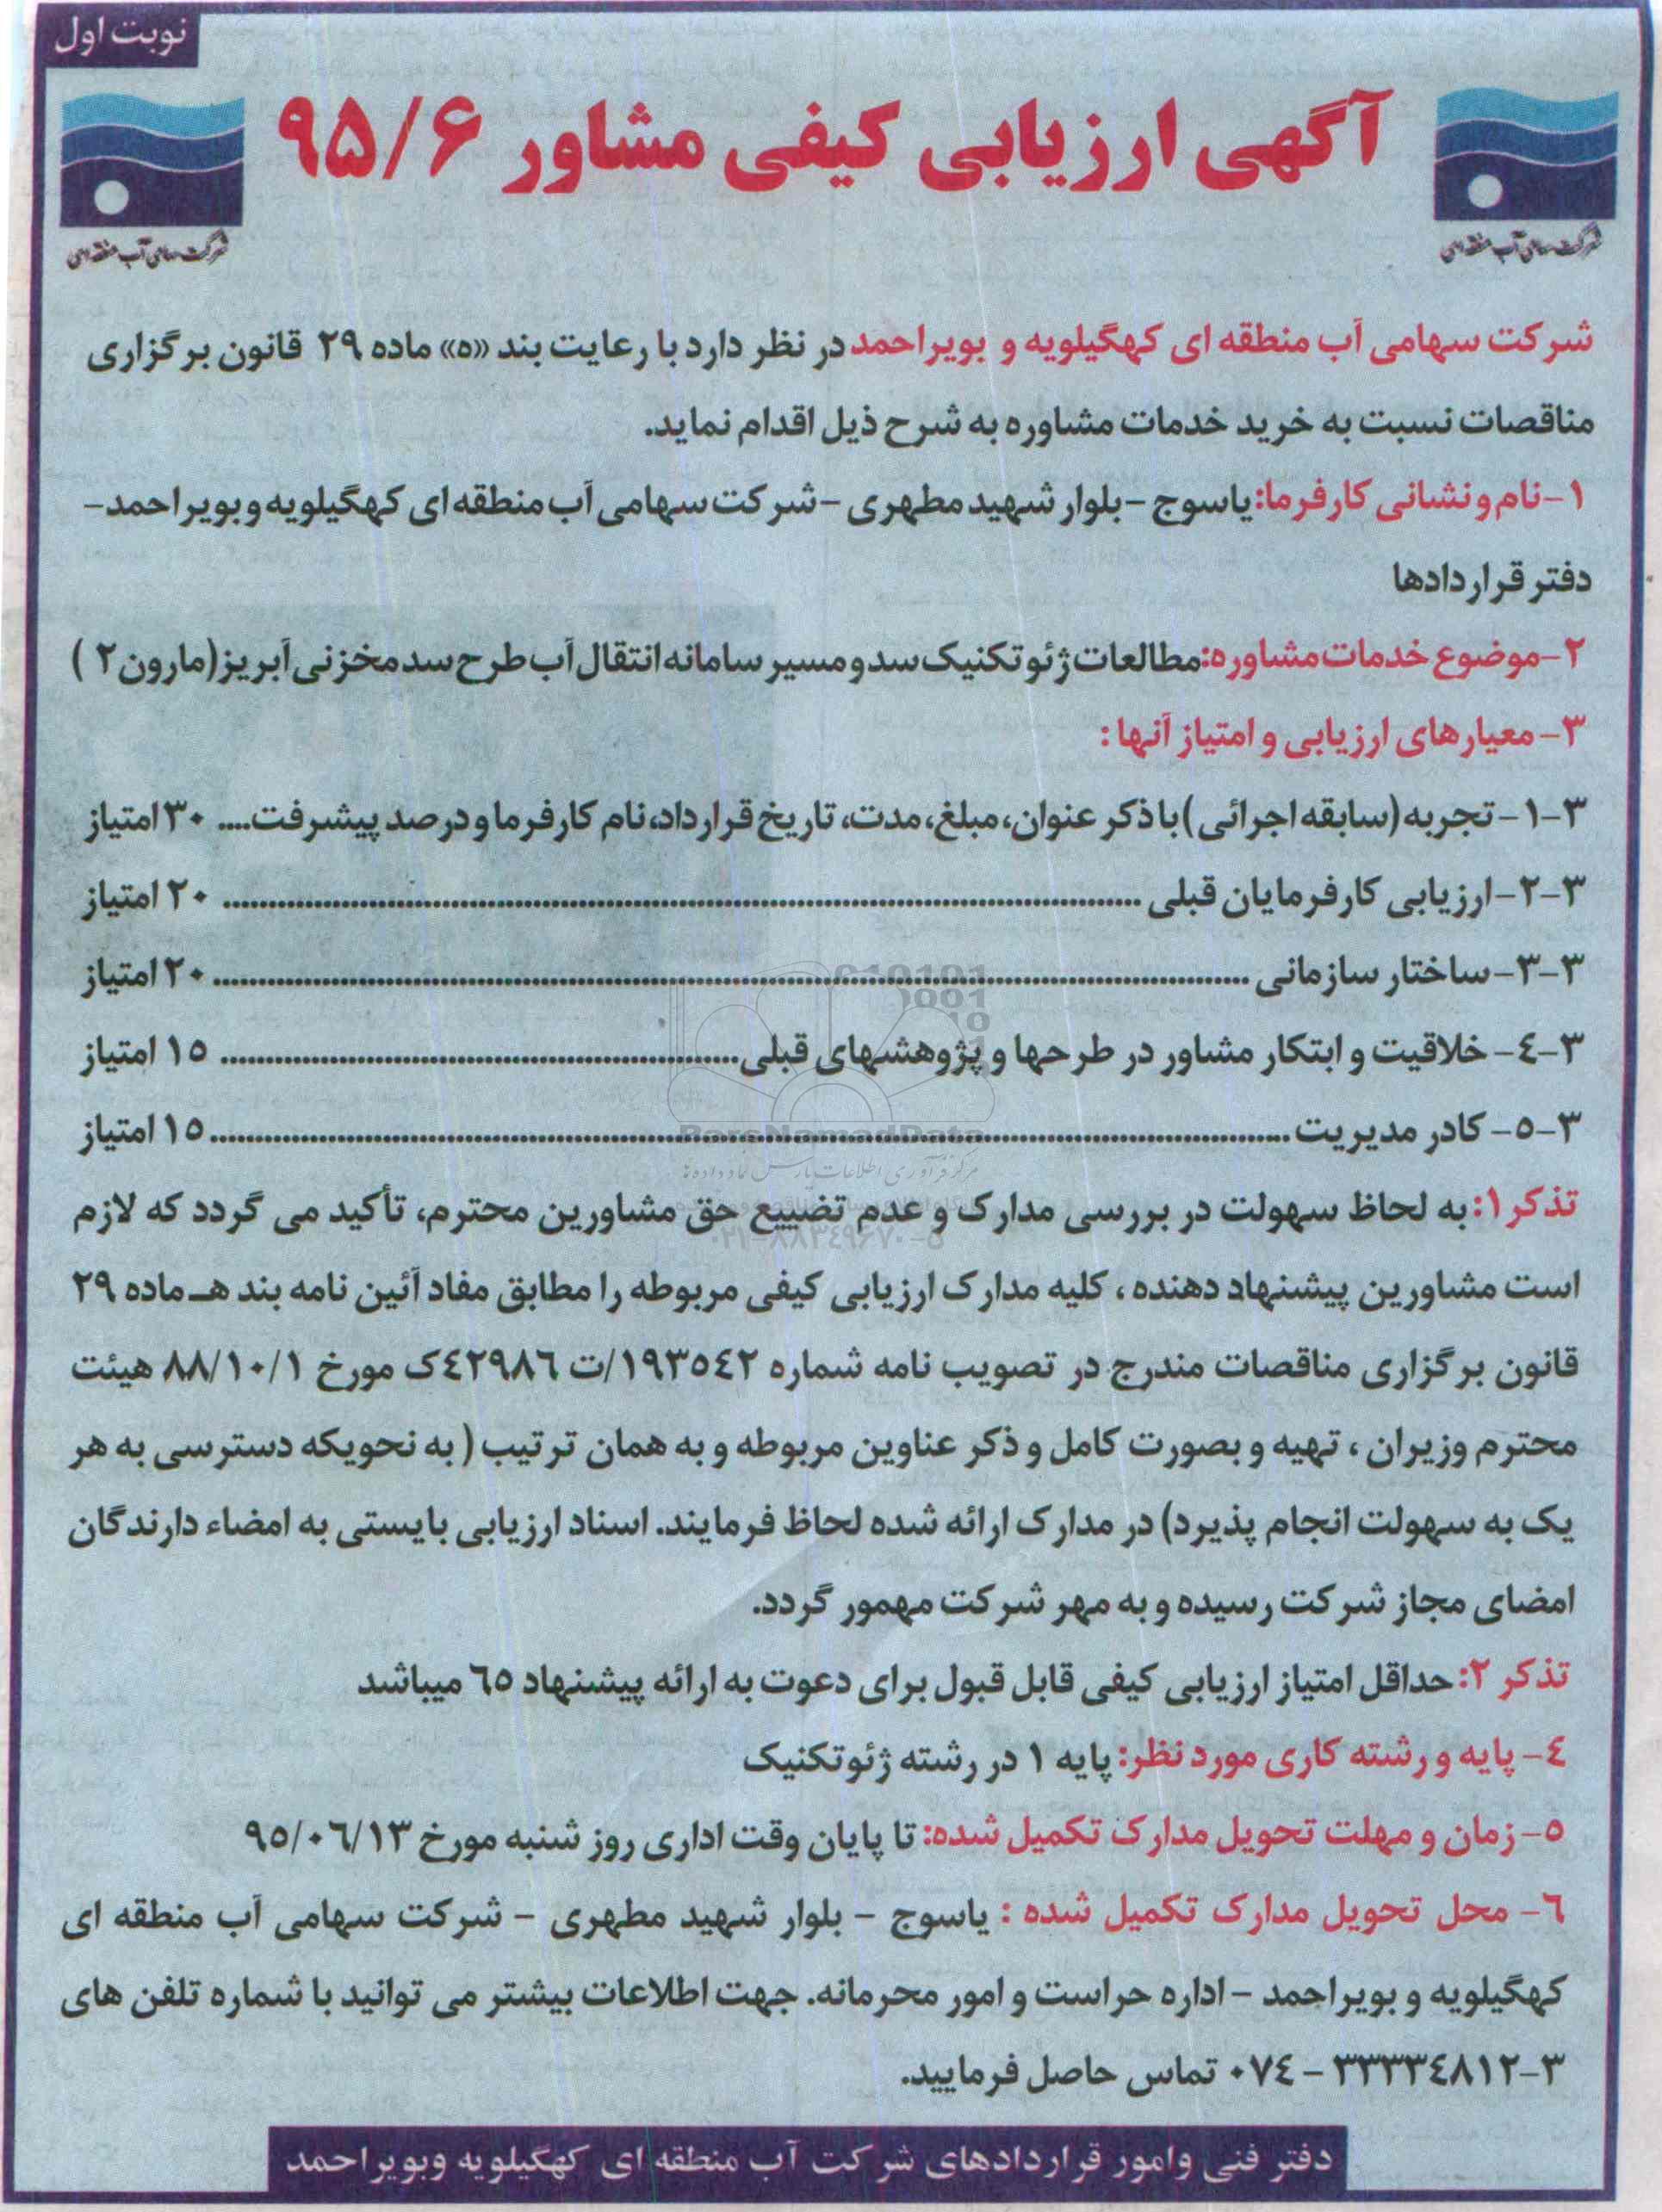 نوبت اول
آگهی ارزیابی کیفی مشاور ۹۵/۶
شرکت سهامی آب منطقه ای
شرکت سهامی آب منطقه ای
شرکت سهامی آب منطقه ای کهگیلویه و بویراحمد در نظر دارد با رعایت بند «ه» ماده ۲۹ قانون برگزاری
مناقصات نسبت به خرید خدمات مشاوره به شرح ذیل اقدام نماید.
۱-نام و نشانی کارفرما: یاسوج -بلوار شهید مطهری -شرکت سهامی آب منطقه ای کهگیلویه و بویراحمد-
دفتر قراردادها
۲-موضوع خدمات مشاوره: مطالعات ژئوتکنیک سد و مسیر سامانه انتقال آب طرح سد مخزنی آبریز(مارون۲ )
۳- معیارهای ارزیابی و امتیاز آنها :
۳-۱- تجربه (سابقه اجرائی) با ذکر عنوان، مبلغ، مدت، تاریخ قرارداد، نام کارفرما و درصد پیشرفت.... ۳۰ امتیاز
۳-۲-ارزیابی کارفرمایان قبلی ........ ۲۰ امتیاز
۳-۳- ساختار سازمانی ........ ۲۰ امتیاز
۳-٤- خلاقیت و ابتکار مشاور در طرحها و پژوهشهای قبلی........ ۱۵ امتیاز
۳-۵- کادر مدیریت ........ ۱۵ امتیاز
ParsNamadData
مرکز فرآوری اطلاعات پارس نماد داده ها
۰۲۱-۸۸۳۴۹۶۷۰-۵
تذکر۱: به لحاظ سهولت در بررسی مدارک و عدم تضییع حق مشاورین محترم، تأکید می گردد که لازم
است مشاورین پیشنهاد دهنده ، کلیه مدارک ارزیابی کیفی مربوطه را مطابق مفاد آئین نامه بند هـ ماده ۲۹
قانون برگزاری مناقصات مندرج در تصویب نامه شماره ۱۹۳۵٤۲/ت ٤۲۹۸٦ک مورخ ۸۸/۱۰/۱ هیئت
محترم وزیران ، تهیه و بصورت کامل و ذکر عناوین مربوطه و به همان ترتیب ( به نحویکه دسترسی به هر
یک به سهولت انجام پذیرد) در مدارک ارائه شده لحاظ فرمایند. اسناد ارزیابی بایستی به امضاء دارندگان
امضای مجاز شرکت رسیده و به مهر شرکت مهمور گردد.
تذکر ۲: حداقل امتیاز ارزیابی کیفی قابل قبول برای دعوت به ارائه پیشنهاد ٦۵ میباشد
٤- پایه و رشته کاری مورد نظر: پایه ۱ در رشته ژئوتکنیک
۵- زمان و مهلت تحویل مدارک تکمیل شده: تا پایان وقت اداری روز شنبه مورخ ۹۵/۰٦/۱۳
٦- محل تحویل مدارک تکمیل شده : یاسوج - بلوار شهید مطهری - شرکت سهامی آب منطقه ای
کهگیلویه و بویراحمد - اداره حراست و امور محرمانه. جهت اطلاعات بیشتر می توانید با شماره تلفن های
۳-۳۳۳۳٤۸۱۲ - ۰۷٤ تماس حاصل فرمایید.
دفتر فنی وامور قراردادهای شرکت آب منطقه ای کهگیلویه وبویراحمد